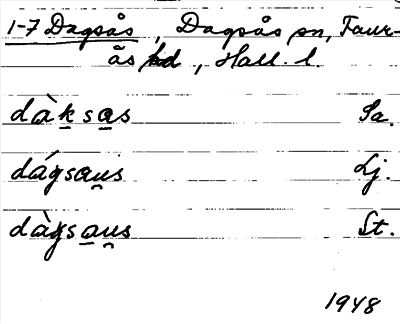 1-7 Dagsås, Dagsås sn, Faur-
ås hd, Hall. l.
dàksas Sa.
dágsaus Lj.
dàgsaus St.
1948